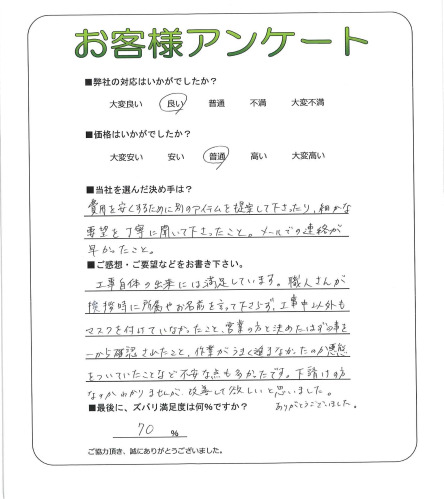 お客様アンケート
■弊社の対応はいかがでしたか？
大変良い 良い 普通 不満 大変不満
■価格はいかがでしたか？
大変安い 安い 普通 高い 大変高い
■当社を選んだ決め手は？
費用を安くするために別のアイテムを提案して下さったり、細かな
要望を丁寧に聞いて下さったこと。メールでの連絡が
早かったこと。
■ご感想・ご要望などをお書き下さい。
工事自体の出来には満足しています。職人さんが
挨拶時に所属やお名前を言って下さらず、工事中以外も
マスクを付けていなかったこと、営業の方と決めたはずの事を
一から確認されたこと、作業がうまく進まなかったのか悪態
をついていたことなど不安な点も多かったです。下請けの方
なのかわかりませんが、改善して欲しいと思いました。
ありがとうございました。
■最後に、ズバリ満足度は何%ですか？
70 %
ご協力頂き、誠にありがとうございました。